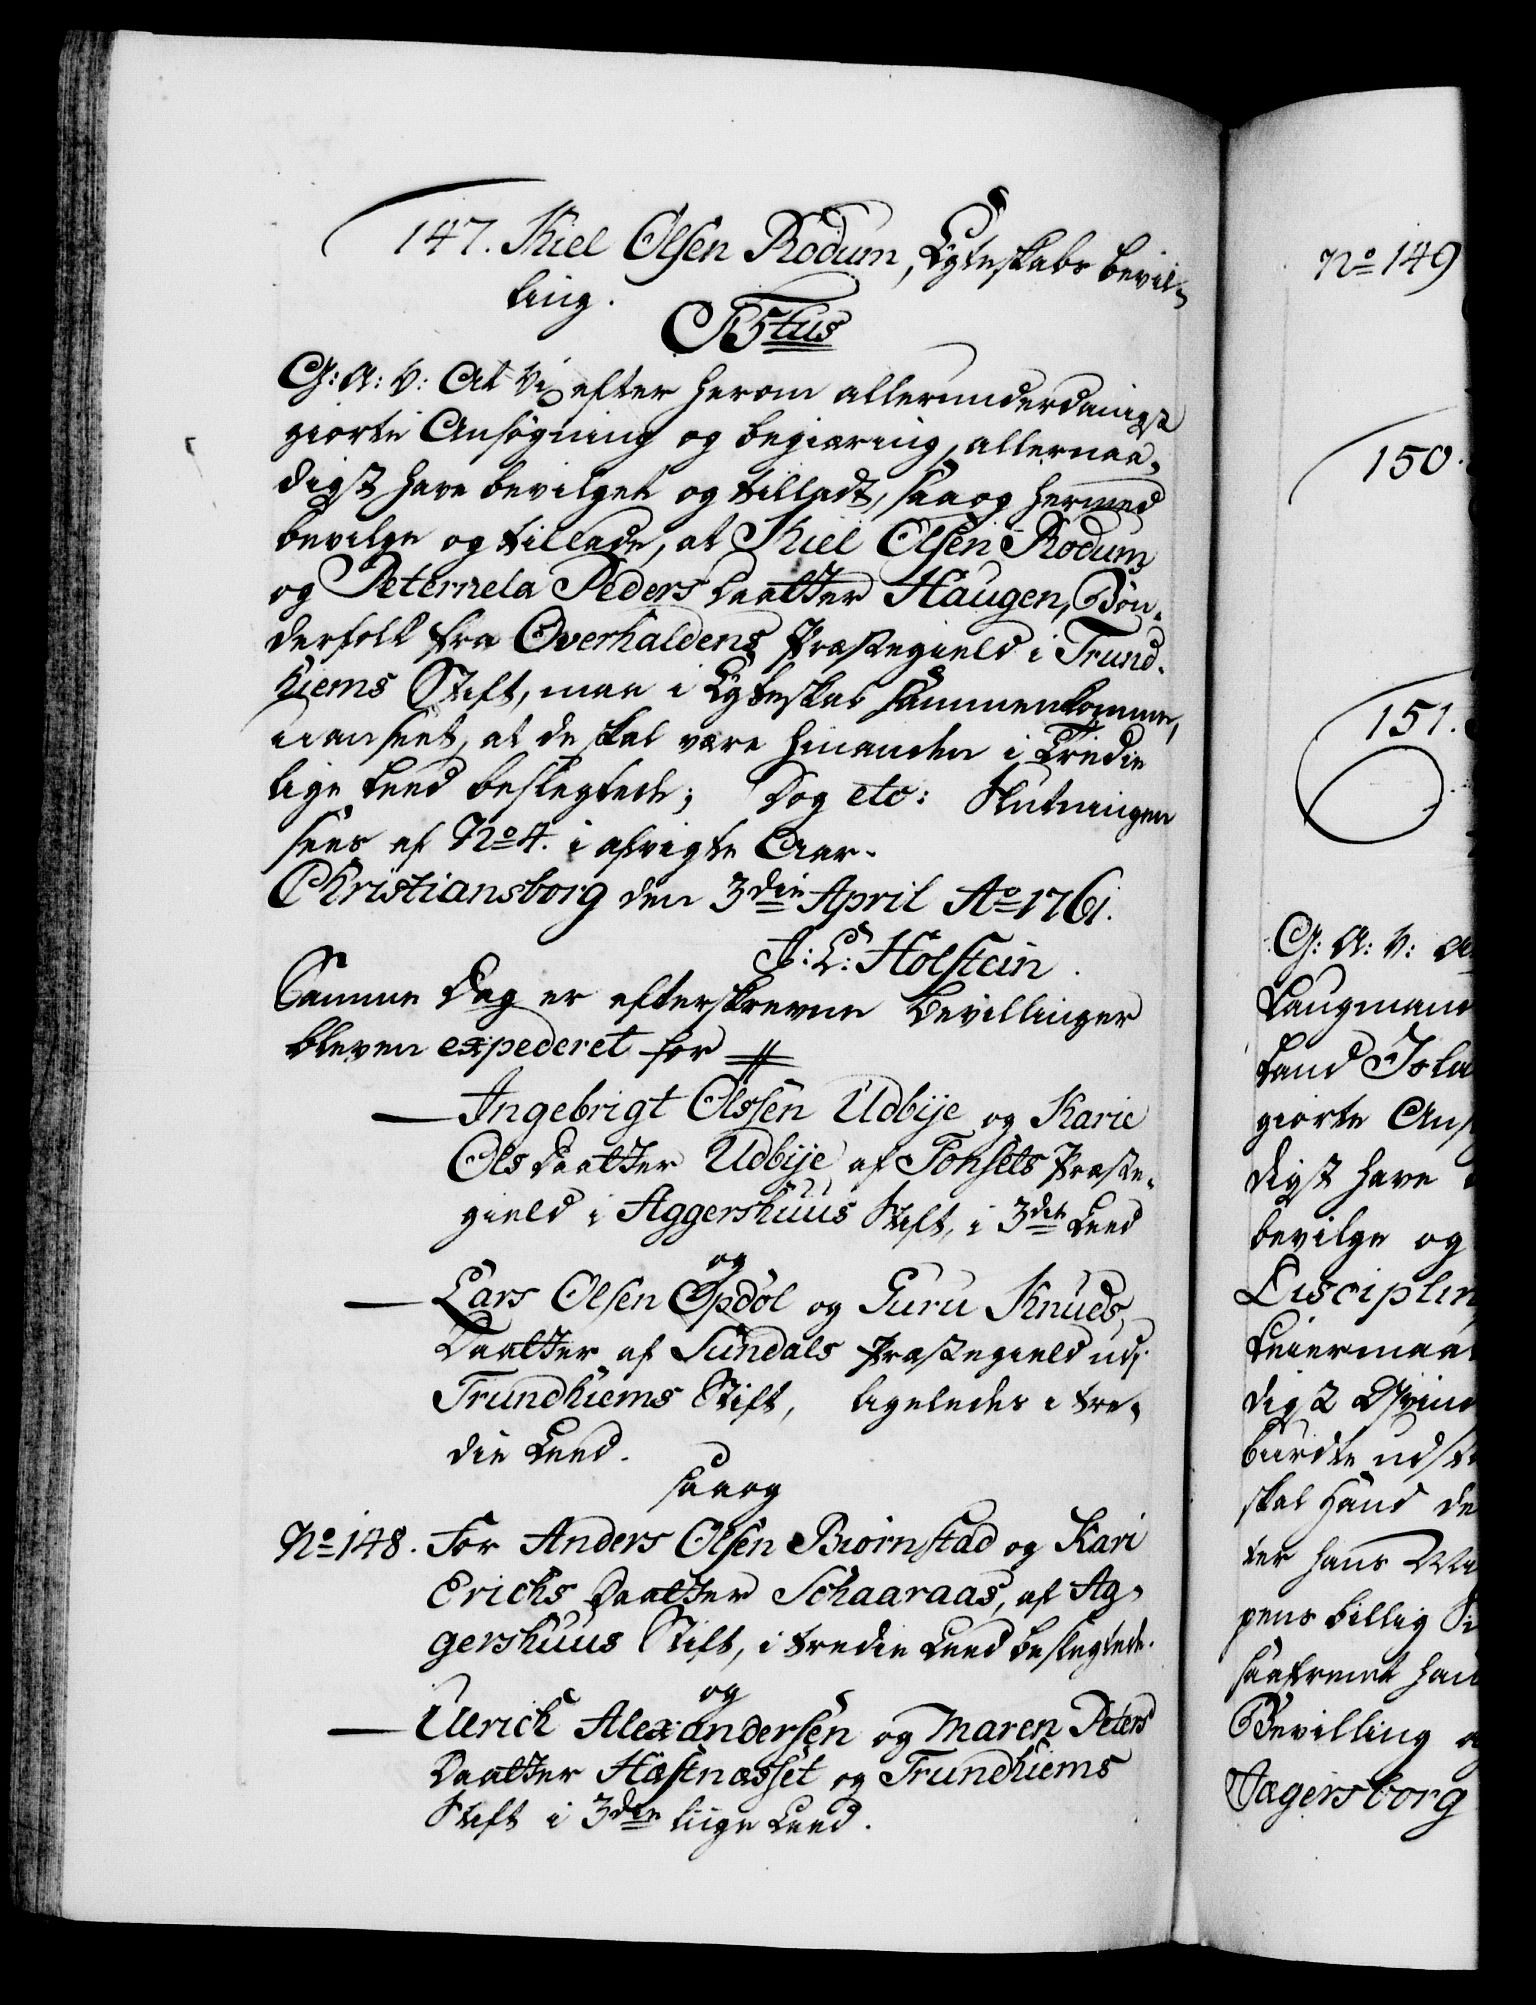 147. Kiel Olsen Rodum, Egteskabs bevil-
ling.
C5tus
G: A: V: At Vi efter herom allerunderdanigst
giorte Ansøgning og begiæring, allernaa-
digst have bevilget og tilladt, saa og hermed
bevilge og tillade, at Kiel Olsen Rodum
og Peternela Peders Daatter Haugen, Bøn-
derfolk fra Overhaldens Præstegield i Trund-
hiems Stift, maa i Egteskab sammenkomme,
uanseet, at de skal være hinanden i Tredie
lige Leed beslegtede; Dog etc: Slutningen
sees af No 4. i afvigte Aar.
Christiansborg den 3die April Ao 1761.
J: L: Holstein.
Samme Dag er efterskrevne Bevillinger
bleven expederet for
— Ingebrigt Olssen Udbije og Karie
Ols Daatter Udbije af Tønsets Præste-
gield i Aggershuus Stift, i 3die Leed
og
— Lars Olsen Opdøl og Guru Knuds
Daatter af Sundals Præstegield udi
Trundhiems Stift, ligeledes i tre-
die Leed.
saa og
No 148. For Anders Olsen Biørnstad og Kari
Erichs Daatter Schaaraas, af Ag-
gershuus Stift, i tredie Leed beslegtede.
og
— Ulrich Alexandersen og Maren Peters
Daatter Hæstnæsset og Trundhiems
Stift i 3die liige Leed.
No 149
150.
151.
G: A: V: A
Laugmand
land Isla
giorte Ans
digst have
bevilge og
Disciplin
Leiermaa
digt Qvind
burdte udst
skal Hand de
ter hans
pens billig
saafremt han
Bevilling
Jægersborg